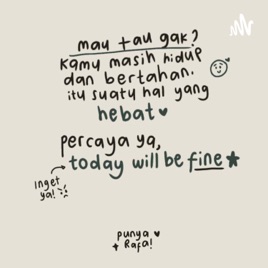 mau tau gak?
kamu masih hidup
dan bertahan.
itu suatu hal yang
hebat
percaya ya,
today will be fine
Inget
ya!
punya
+ Rafa!